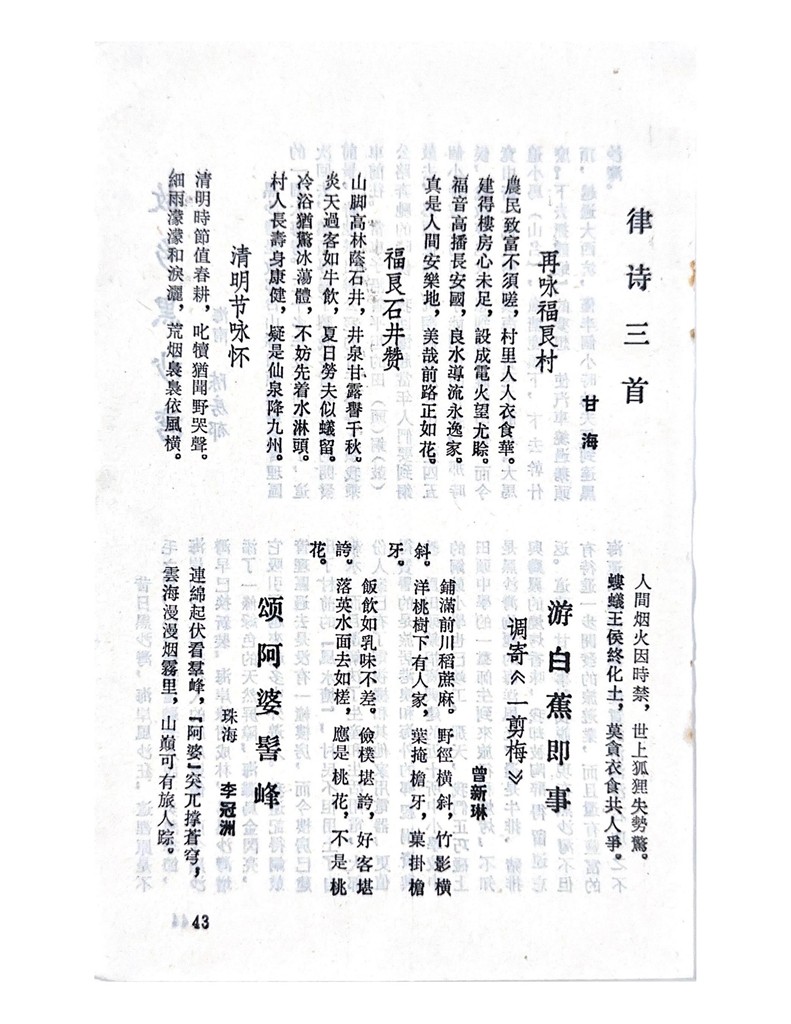 律诗三首
甘海
再咏福良村
農民致富不須嗟，村里人人衣食華。
建得樓房心未足，設成電火望尤賒。
福音高播長安國，良水導流永逸家。
真是人間安樂地，美哉前路正如花。
福良石井赞
山脚高林蔭石井，井泉甘露譽千秋。
炎天過客如牛飲，夏日勞夫似蟻留。
冷浴猶驚冰蕩體，不妨先着水淋頭。
村人長壽身康健，疑是仙泉降九州。
清明节咏怀
清明時節值春耕，叱犢猶聞野哭聲。
細雨濛濛和淚灑，荒烟裊裊依風橫。
人間烟火因時禁，世上狐狸失勢驚。
螻蟻王侯終化土，莫貪衣食共人爭。
游白蕉即事
调寄《一剪梅》
曾新琳
鋪滿前川稻蔗麻。野徑橫斜，竹影橫
斜。洋桃樹下有人家，葉掩檐牙，菓掛檐
牙。
飯飲如乳味不差。儉樸堪誇，好客堪
誇。落英水面去如槎，應是桃花，不是桃
花。
颂阿婆髻峰
珠海 李冠洲
連綿起伏看羣峰，「阿婆」突兀撑蒼穹，
雲海漫漫烟霧里，山巔可有旅人踪。
43